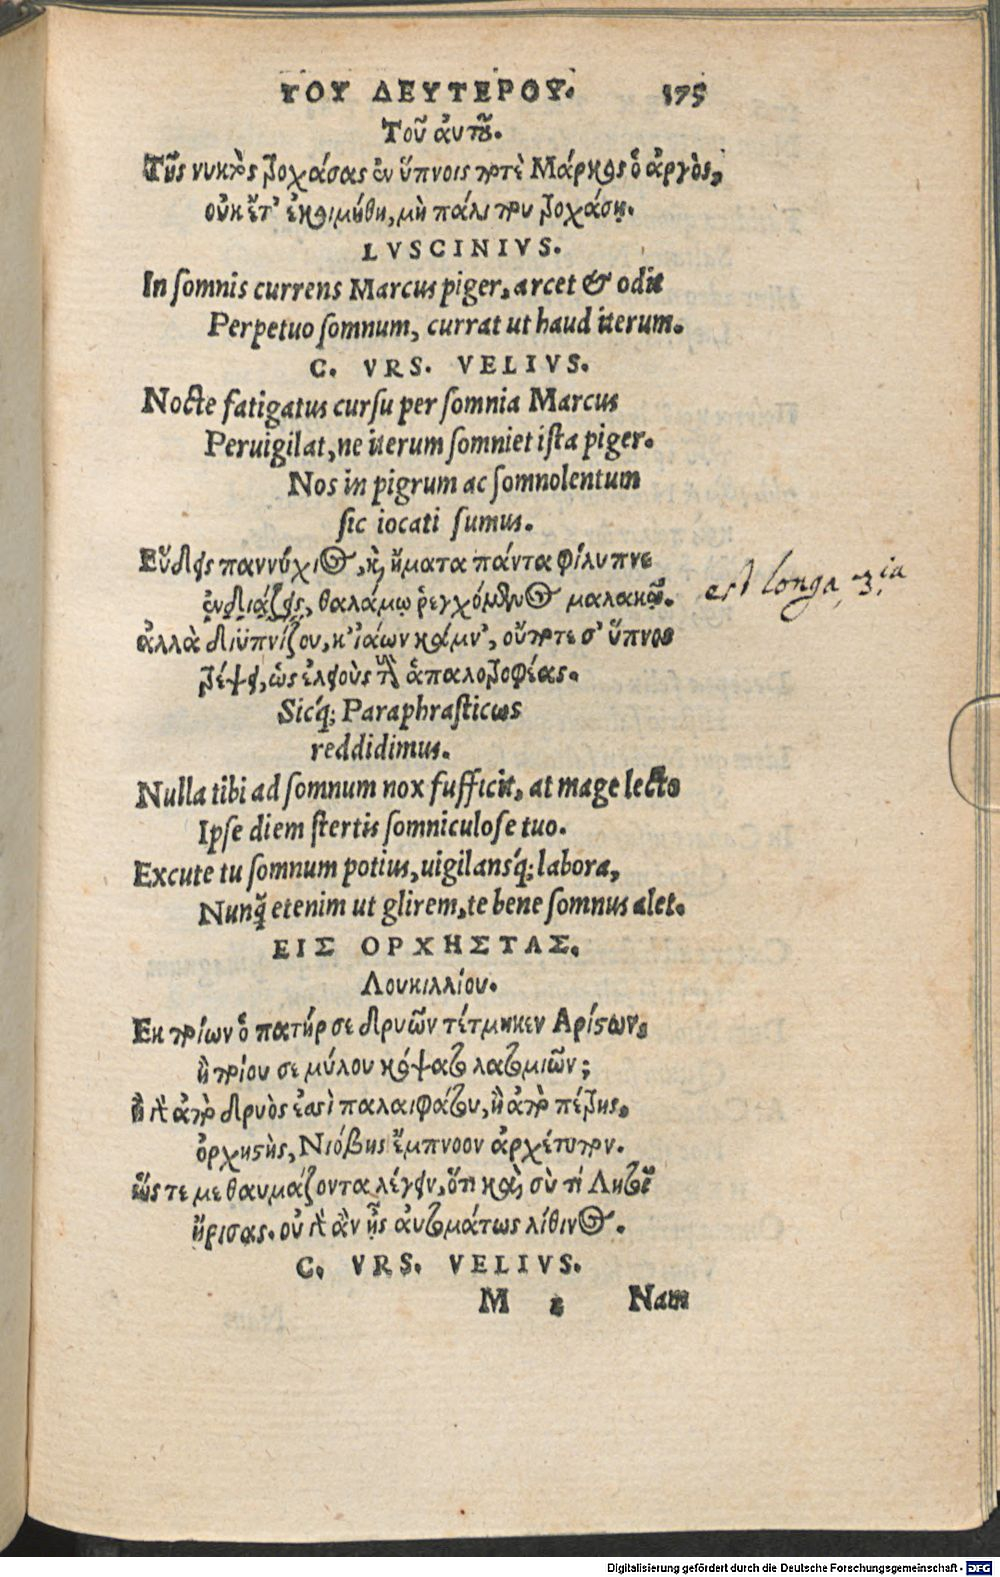 ΤΟΥ ΔΕΥΤΕΡΟΥ. 175
Τοῦ ἀυτοῦ.
Τῆς νυκτὸς τροχάσας ἐν ὕπνοις ποτὲ Μάρκος ὁ ἀργὸς,
οὐκ ἔτ' ἐκοιμήθη, μὴ πάλι που τροχάσῃ.
LVSCINIVS.
In somnis currens Marcus piger, arcet & odit
Perpetuo somnum, currat ut haud iterum.
C. VRS. VELIVS.
Nocte fatigatus cursu per somnia Marcus
Peruigilat, ne iterum somniet ista piger.
Nos in pigrum ac somnolentum
sic iocati sumus.
Εὕδεις παννύχιος, κὶ ἤματα πάντα φίλυπνε
ἐνδιάζεις, θαλάμῳ ῥεγχόμενος μαλακῷ.
est longa, 3.ia
ἀλλὰ διϋπνίζου, κ' ἰάων κάμν', οὔποτε σ' ὕπνος
τρέψει, ὡς ἐλειοὺς ἁπαλοτροφέας.
Sicq́; Paraphrasticως
reddidimus.
Nulla tibi ad somnum nox sufficit, at mage lecto
Ipse diem stertis somniculose tuo.
Excute tu somnum potius, uigilansq́; labora,
Nunq̃ etenim ut glirem, te bene somnus alet.
ΕΙΣ ΟΡΧΗΣΤΑΣ.
Λουκιλλίου.
Εκ ποίων ὁ πατήρ σε δρυῶν τέτμηκεν Αρίστων,
ἢ ποίου σε μύλου κόψατο λατομιῶν;
ἢ γὰ ἀπὸ δρυὸς ἐσσὶ παλαιφάτου, ἢ ἀπὸ πέτρης,
ὀρχηστὴς, Νιόβης ἔμπνοον ἀρχέτυπον.
ὥς τε με θαυμάζοντα λέγειν, ὅτι καὶ σὺ τί Λητοῖ
ἤρισας. οὐ γὰ ἂν ἦς ἀυτομάτως λίθινος.
C. VRS. VELIVS.
M Nam
Digitalisierung gefördert durch die Deutsche Forschungsgemeinschaft - DFG